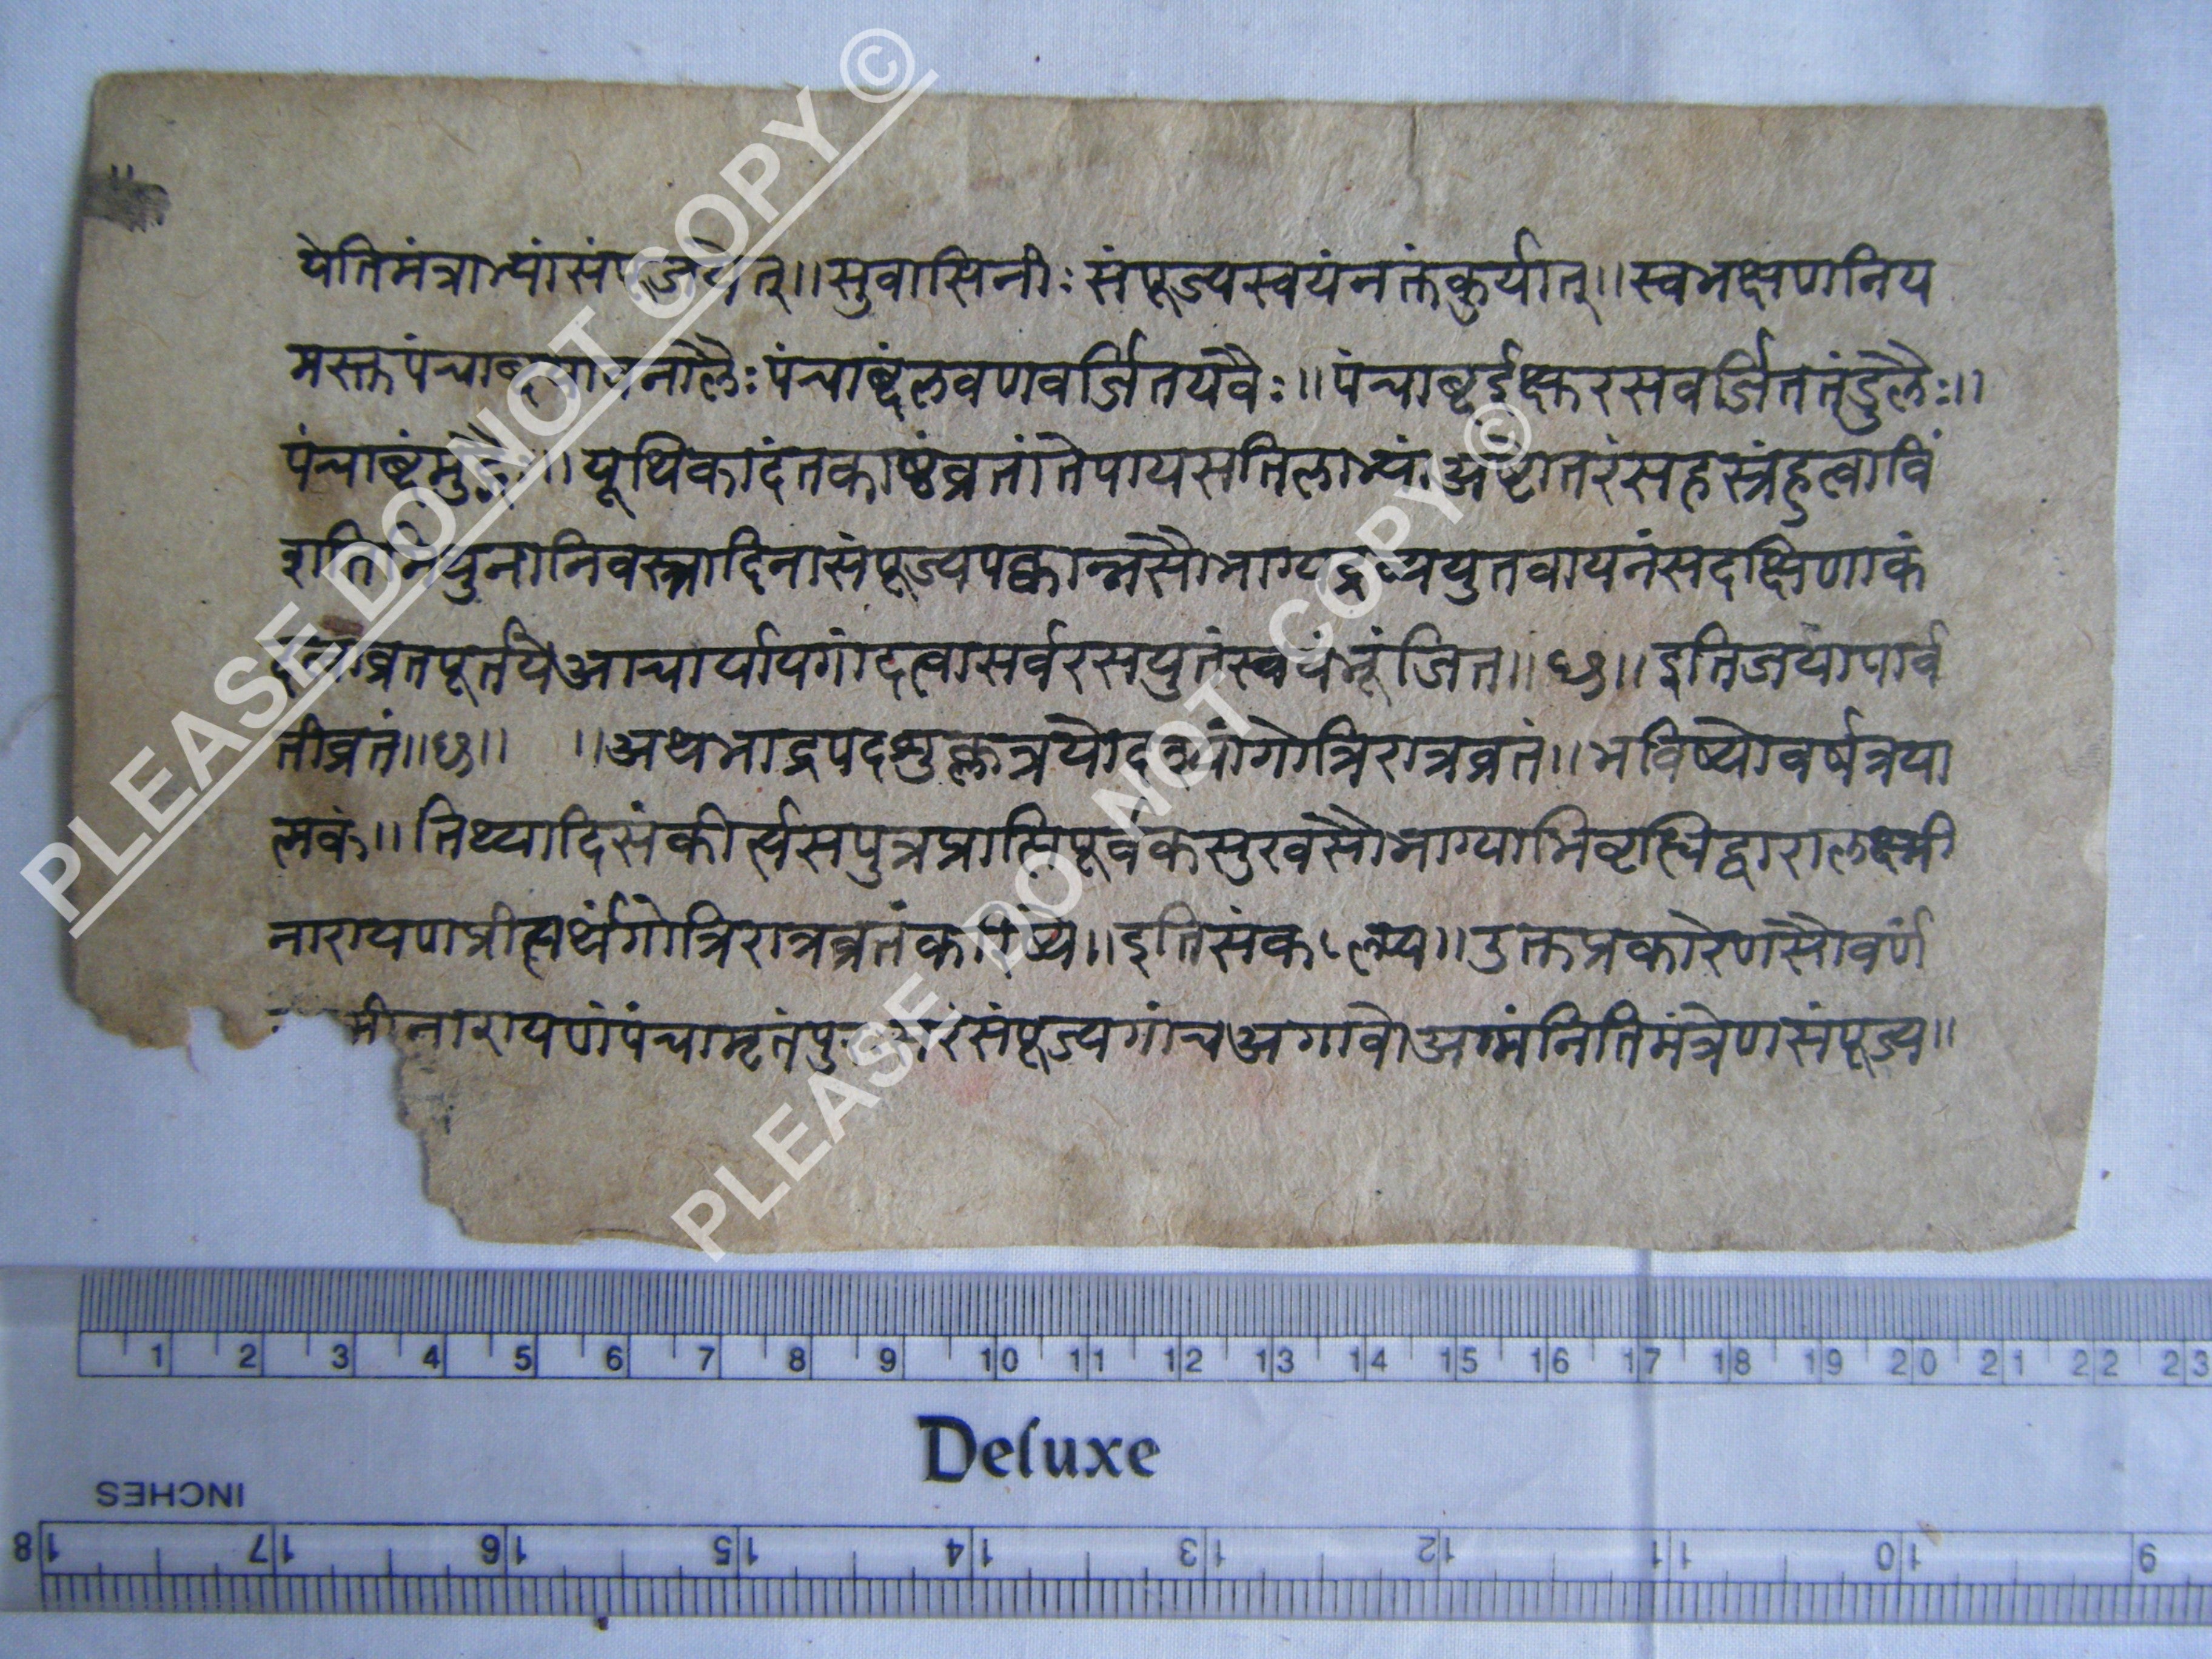 येतिमंत्राभ्यांसंपूजयेत्॥सुवासिनीः संपूज्यस्वयंनक्तंकुर्यात्॥स्वभक्षणनिय
मस्तपंचाब्दं पंचाब्दंलवणवर्जितयवैः॥पंचाब्दईक्षरसवर्जिततंडुलैः॥
पंचाब्दंमुद्गैः॥यूथिकादंतकाष्ठंव्रतांतेपायसतिलाभ्यांअष्टोतरंसहस्त्रंहुत्वाविं
शतिमिथुनानिवस्त्रादिनासंपूज्यपक्वान्नसौभाग्यद्रव्ययुतवायनंसदक्षिणाकं
दत्वाव्रतपूर्तयेआचार्यायगांदत्वासर्वरसयुतंस्वयंभूंजित॥छ॥इतिजयापार्व
तीव्रतं॥छ॥ ॥अथभाद्रपदशुक्लत्रयोदश्यांगोत्रिरात्रव्रतं॥भविष्योवर्षत्रया
त्मकं॥तिथ्यादिसंकीर्त्यसपुत्रप्राप्तिपूर्वकसुखसौभाग्याभिवृत्धिद्वारालक्ष्मी
नारायणप्रीत्यर्थंगोत्रिरात्रव्रतंकरिष्ये॥इतिसंकल्प्य॥उक्तप्रकारेणसौवर्ण
मीनारायणंपंचामृतंपुरःसरंसंपूज्यगांचअगावोअग्मंनितिमंत्रेणसंपूज्य॥
PLEASE DO NOT COPY ©
PLEASE DO NOT COPY ©
1 2 3 4 5 6 7 8 9 10 11 12 13 14 15 16 17 18 19 20 21 22 23
Deluxe
INCHES
18 17 16 15 14 13 12 11 10 9